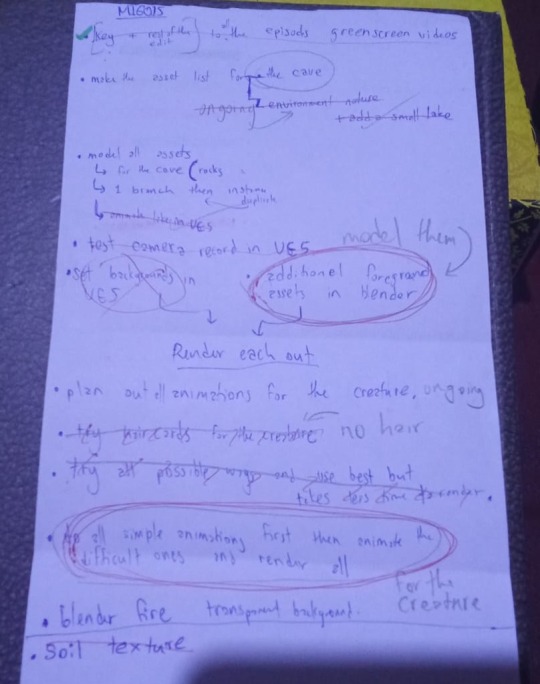 • [Key + rest of the edit] to all the episods greenscreen videos
• make the asset list for the cave
ongoing environment nature
+ add a small lake
• model all assets
↳ for the cave (rocks
↳ 1 branch then
duplicate
in UE5
• test camera record in UE5
model them
• set backgrounds in UE5
• additionel foreground assets in blender
Render each out
• plan out all animations for the creature, ongoing
• try hair cards for the creature
no hair
• try all possible ways and use best but
takes less time to render.
• do all simple animations first then animate the
difficult ones and render all
for the
creature
• blender fire transparent background.
• Soil texture